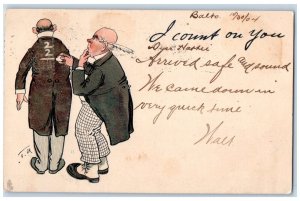 Balto.
I count on you
Dear Hattie
Arrived safe and sound
We came down in
very quick time
Walt
2
2